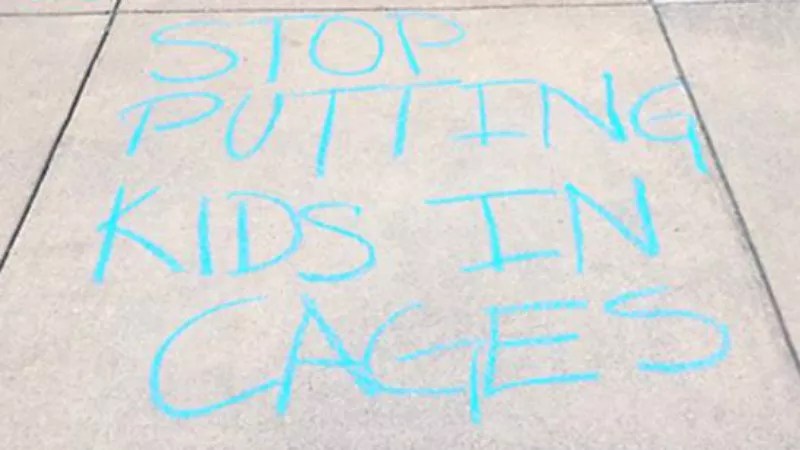 STOP
PUTTING
KIDS IN
CAGES